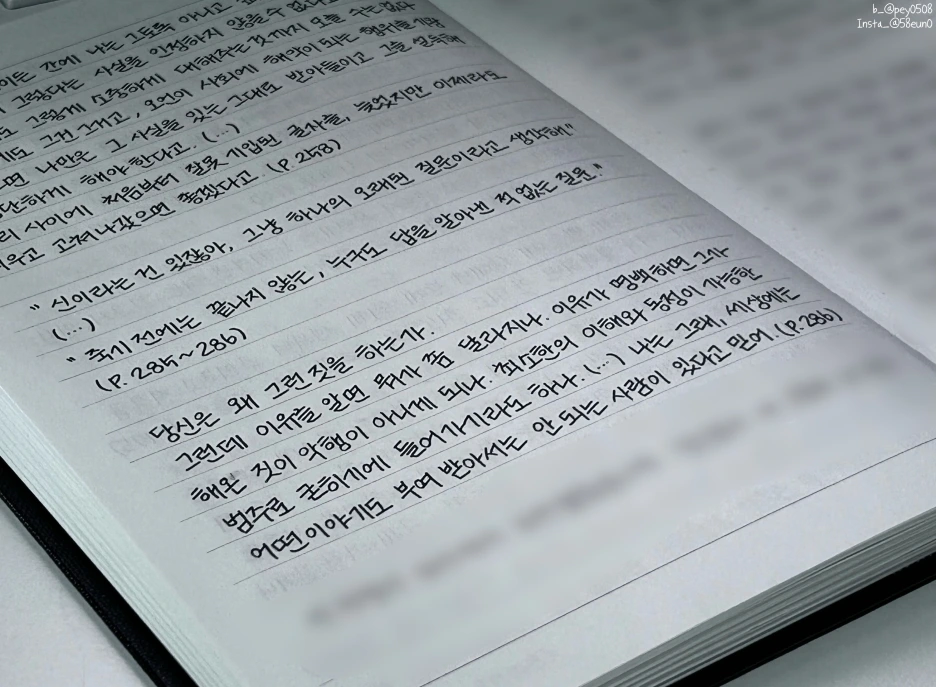 b_@pey0508
Insta_@58eun0
간에 나는 그토록 아니고
그렇다는 사실을 인정하지 않을 수 없다고
그렇게 소중하게 대해주는 것까지 오늘 수는 없다
그건 그래고, 오언이 사회에 해악이 되는 행위를
나만은 그 사실을 있는 그대로 받아들이고 그를 설득해
하게 해야 한다고. (...)
사이에 처음부터 잘못 기입된 글자들, 늦었지만 이제라도
고쳐나갔으면 좋겠다고. (P.258)
" 신이라는 건 있잖아, 그냥 하나의 오래된 질문이라고 생각해."
(...)
" 죽기 전에는 끝나지 않는, 누구도 답을 알아낸 적 없는 질문."
(P.285~286)
당신은 왜 그런 짓을 하는가.
그런데 이유를 알면 뭐가 좀 달라지나. 이유가 명백하면 그가
해온 짓이 악행이 아니게 되나. 최소한의 이해와 동정이 가능한
범주로 군하기에 들어가기라도 하나. (...) 나는 그래, 세상에는
어떤 이야기도 부여 받아서는 안 되는 사람이 있다고 믿어. (P.286)